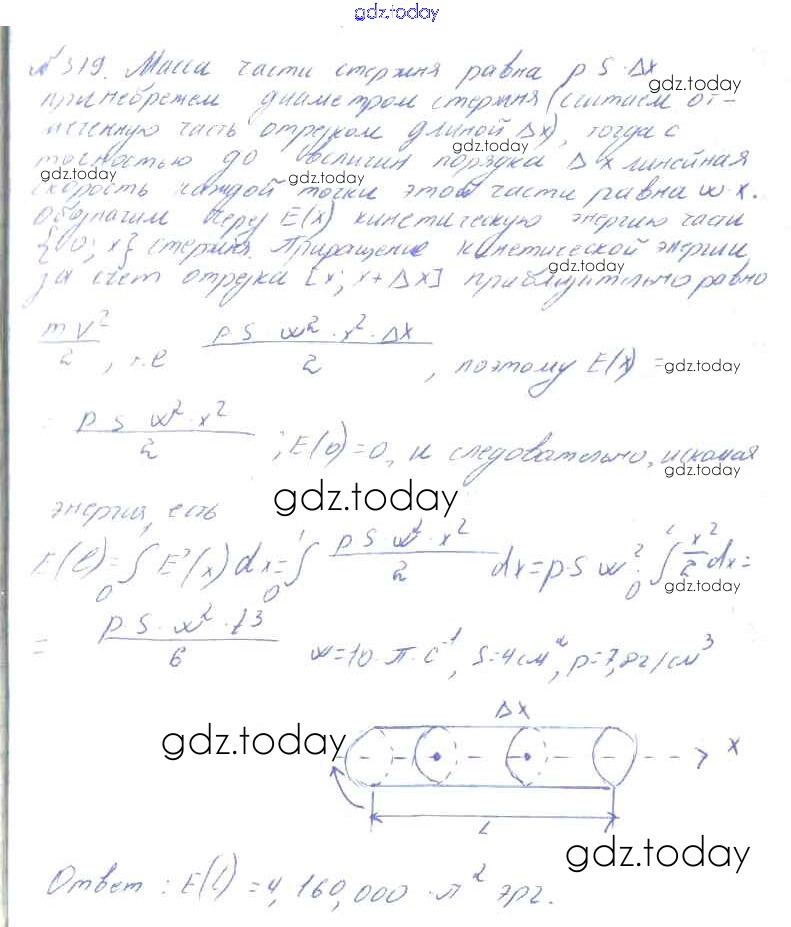 gdz.today
№ 319. Масса части стержня равна ρ S · Δx
gdz.today
принебрежем диаметром стержня (считаем от-
меченную часть отрезком длиной Δx), тогда с
gdz.today
точностью до величин порядка Δx линейная
gdz.today gdz.today
скорость каждой точки этой части равна ω · x.
Обозначим через E(x) кинетическую энергию части
{0; x} стержня. Приращение кинетической энергии
gdz.today
за счет отрезка [x; x + Δx] приблизительно равно
mv²/2, т.е ρ S · ω² · x² · Δx / 2, поэтому E(x) =
gdz.today
ρ S ω² · x² / 2; E(0) = 0, и следовательно, искомая
gdz.today
gdz.today
энергия, есть
E(l) = ∫₀ˡ E'(x) dx = ∫₀ˡ ρ S · ω² · x² / 2 dx = ρ · S ω² · ∫₀ˡ x²/2 dx =
gdz.today
= ρ S · ω² · l³ / 6 ω = 10 · π · c⁻¹, S = 4 см², ρ = 7,8 г/см³
Δx
gdz.today
x
L
gdz.today
Ответ : E(l) = 4,160,000 · π² эрг.